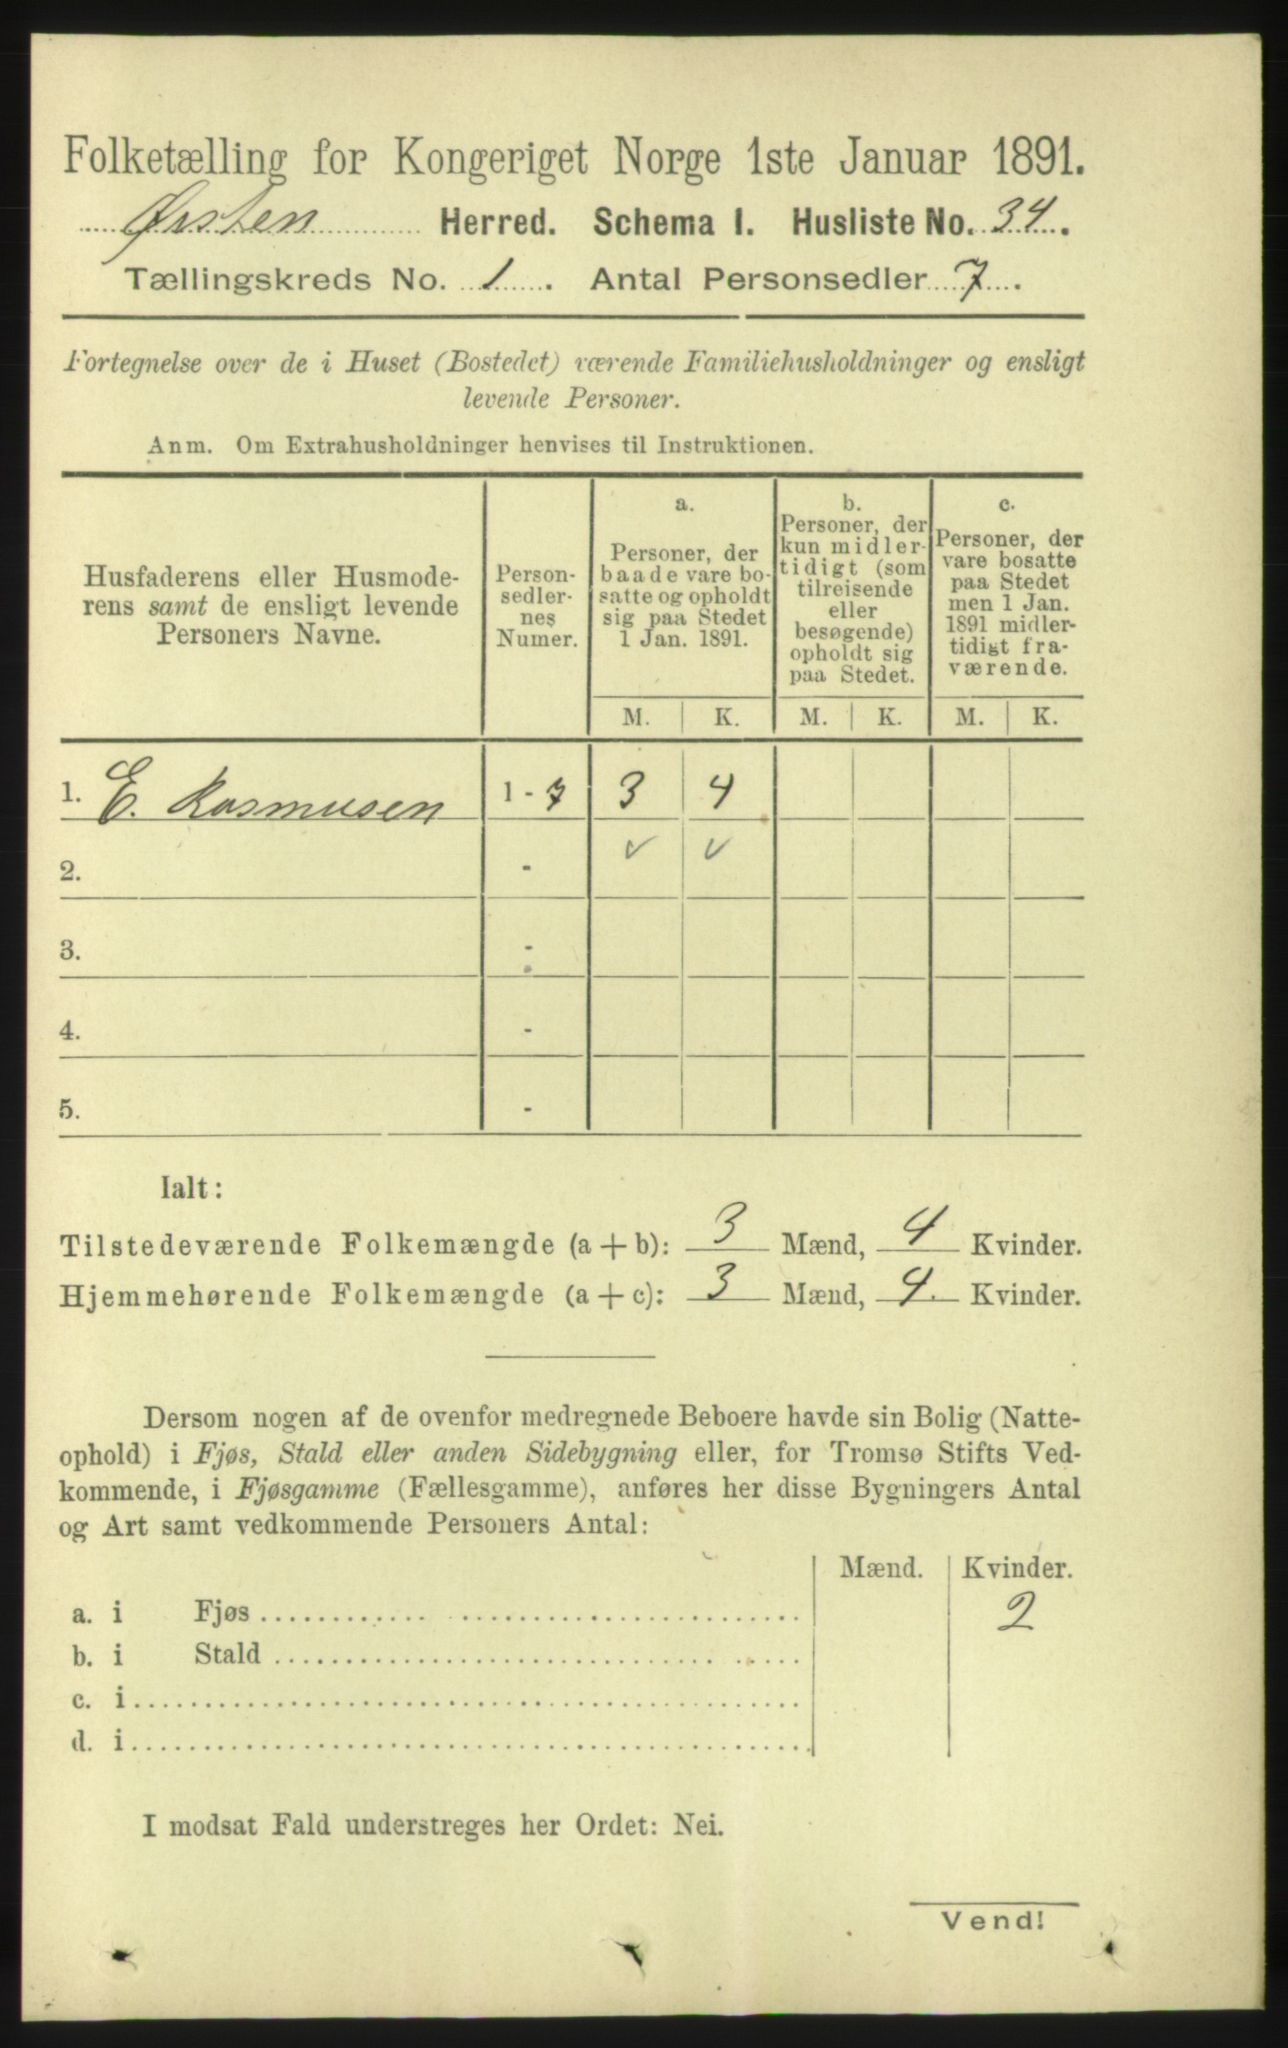 Folketælling for Kongeriget Norge 1ste Januar 1891.
Ørsten Herred. Schema I. Husliste No. 34.
Tællingskreds No. 1. Antal Personsedler 7.
Fortegnelse over de i Huset (Bostedet) værende Familiehusholdninger og ensligt
levende Personer.
Anm. Om Extrahusholdninger henvises til Instruktionen.
Husfaderens eller Husmode-
rens samt de ensligt levende
Personers Navne.
Person-
sedler-
nes
Numer.
a.
Personer, der
baade vare bo-
satte og opholdt
sig paa Stedet
1 Jan. 1891.
b.
Personer, der
kun midler-
tidigt (som
tilreisende
eller
besøgende)
opholdt sig
paa Stedet.
c.
Personer, der
vare bosatte
paa Stedet
men 1 Jan.
1891 midler-
tidigt fra-
værende.
M. K. M. K. M. K.
1. E. Rasmusen 1 - 7 3 4
2. - ✓ ✓
3. -
4. -
5. -
Ialt:
Tilstedeværende Folkemængde (a + b): 3 Mænd, 4 Kvinder.
Hjemmehørende Folkemængde (a + c): 3 Mænd, 4. Kvinder.
Dersom nogen af de ovenfor medregnede Beboere havde sin Bolig (Natte-
ophold) i Fjøs, Stald eller anden Sidebygning eller, for Tromsø Stifts Ved-
kommende, i Fjøsgamme (Fællesgamme), anføres her disse Bygningers Antal
og Art samt vedkommende Personers Antal:
Mænd. Kvinder.
a. i Fjøs 2
b. i Stald
c. i
d. i
I modsat Fald understreges her Ordet: Nei.
Vend!